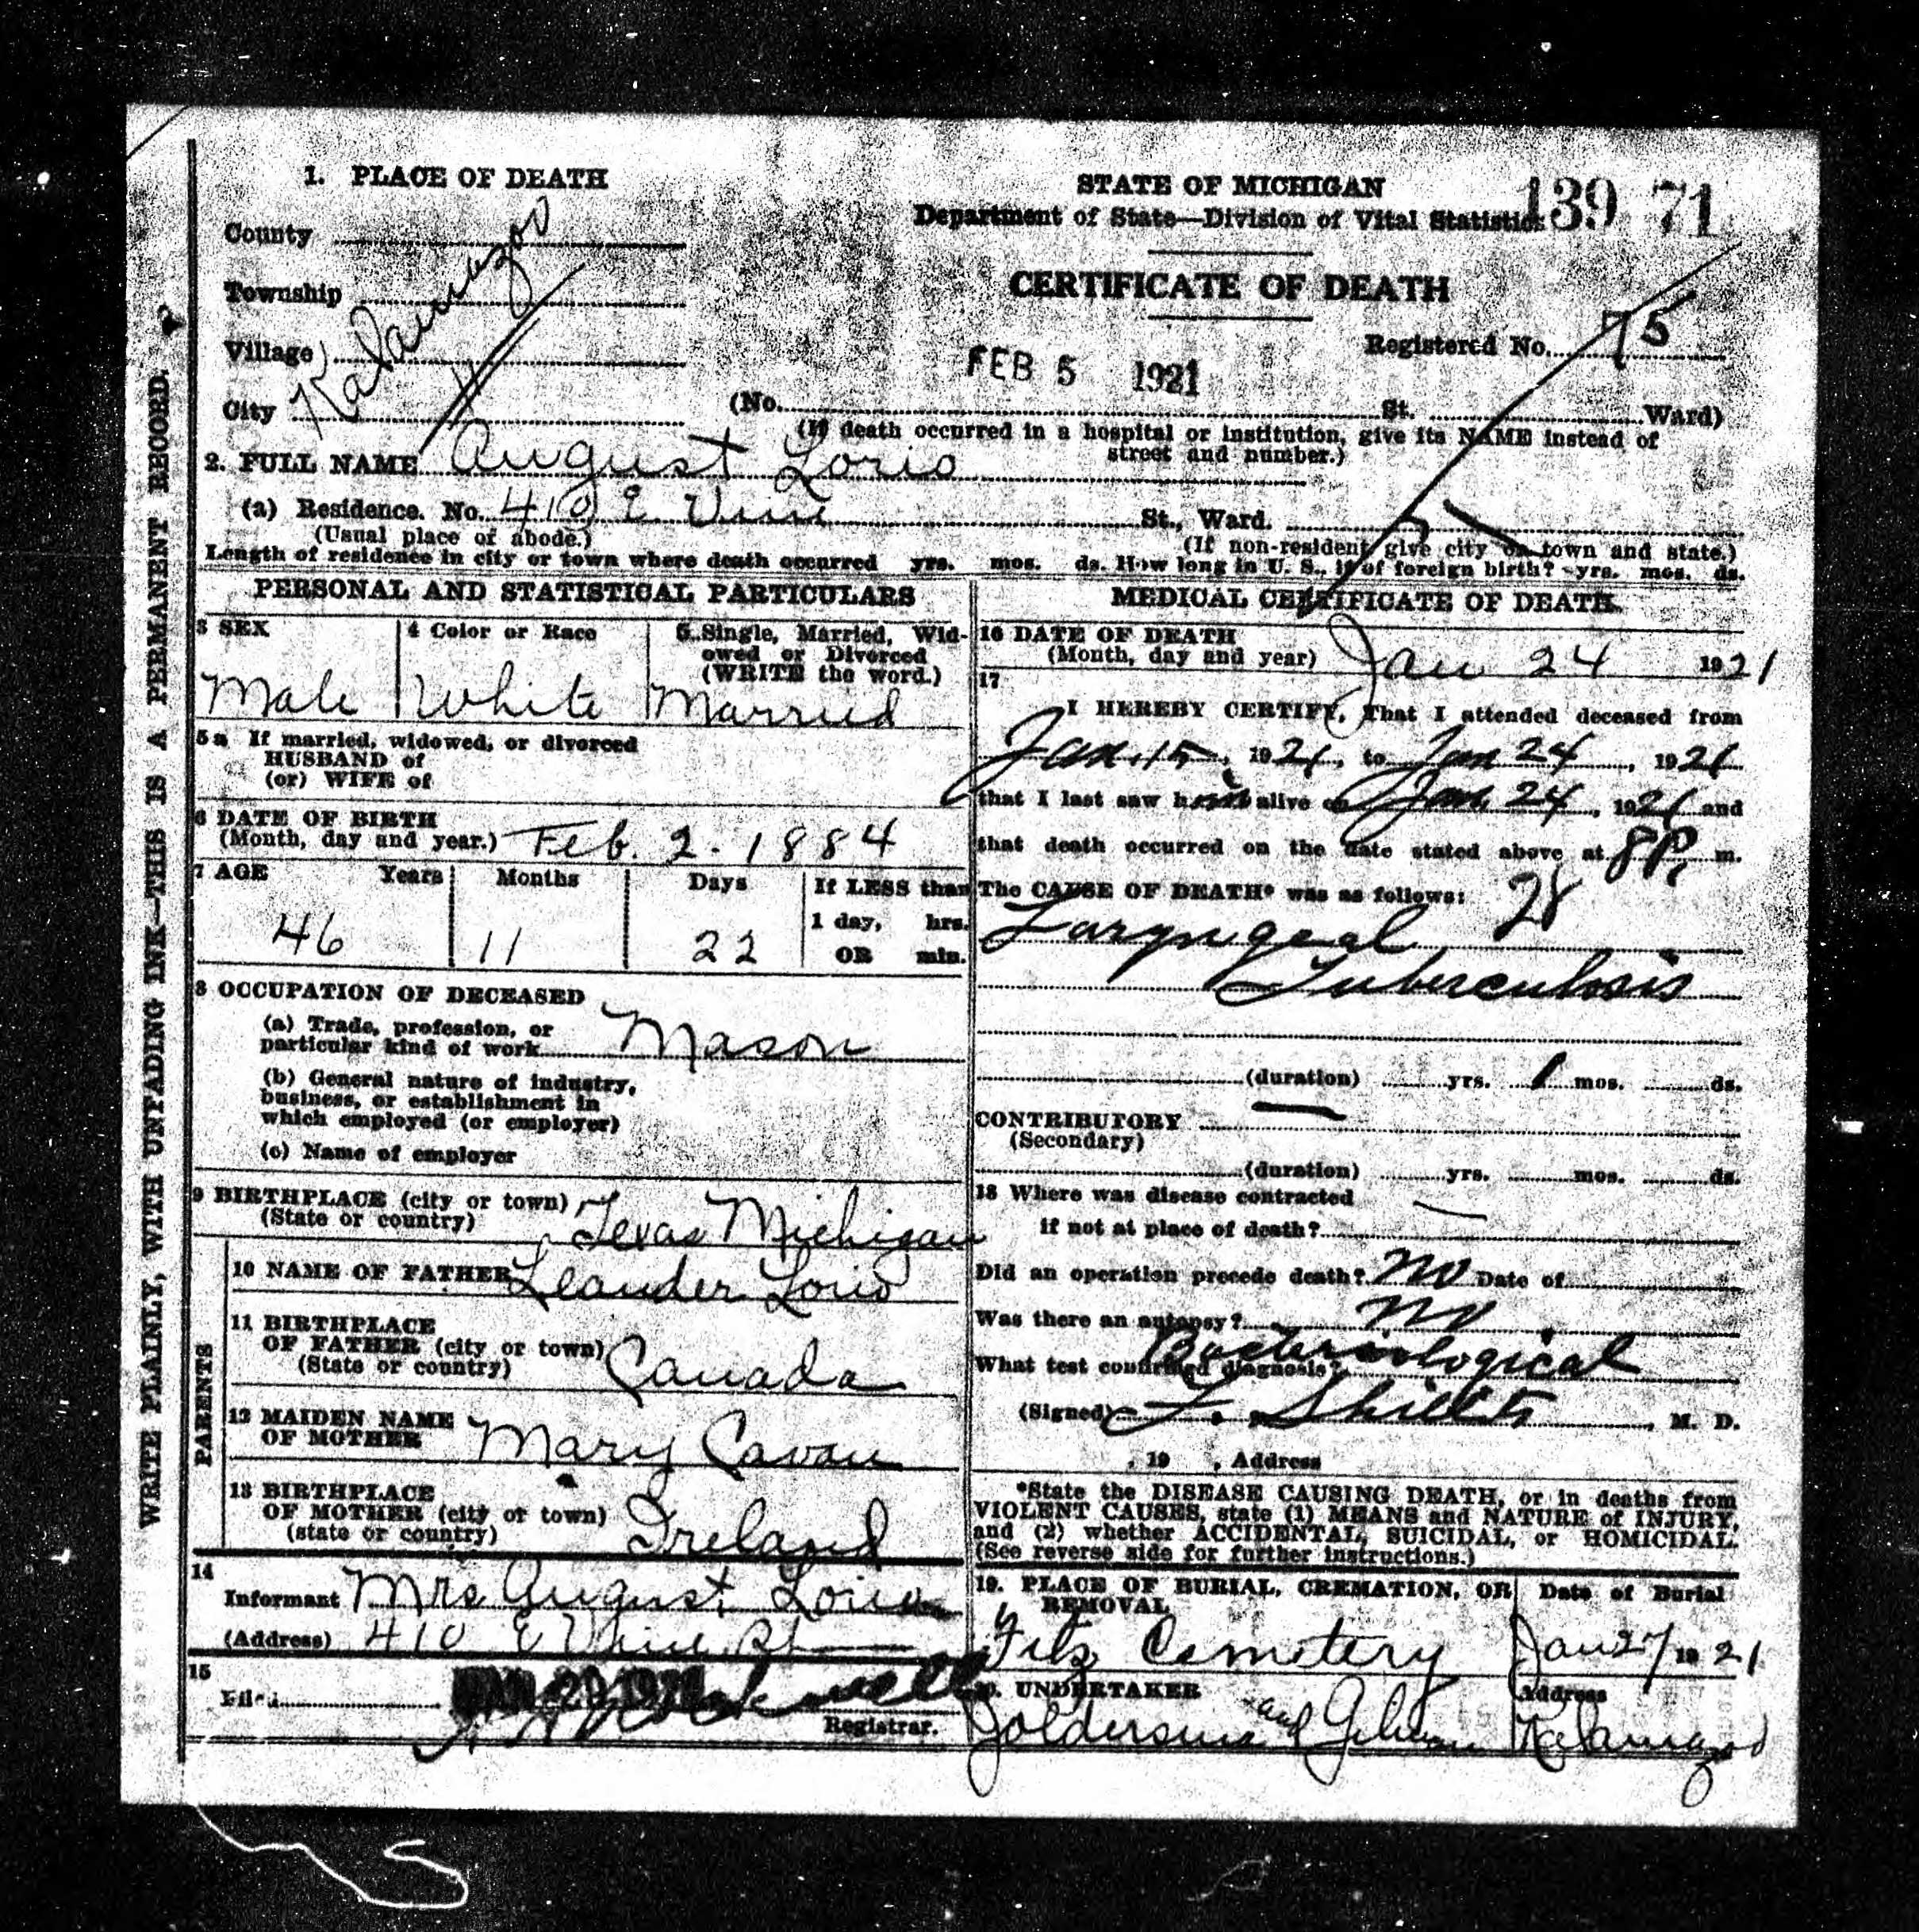 1. PLACE OF DEATH
County
Township
Village
City
Kalamazoo
STATE OF MICHIGAN
Department of State—Division of Vital Statistics
139 71
CERTIFICATE OF DEATH
Registered No. 75
FEB 5 1921
(No. St. Ward)
(If death occurred in a hospital or institution, give its NAME instead of
street and number.)
2. FULL NAME August Lorio
(a) Residence. No. 410 E Vine St., Ward.
(Usual place of abode.)
(If non-resident give city or town and state.)
Length of residence in city or town where death occurred yrs. mos. ds. How long in U. S., if of foreign birth? yrs. mos. ds.
PERSONAL AND STATISTICAL PARTICULARS
3 SEX
Male
4 Color or Race
White
5. Single, Married, Wid-
owed or Divorced
(WRITE the word.)
Married
5a If married, widowed, or divorced
HUSBAND of
(or) WIFE of
6 DATE OF BIRTH
(Month, day and year.) Feb. 2. 1884
7 AGE Years Months Days If LESS than
1 day, hrs.
46 11 22
OR min.
8 OCCUPATION OF DECEASED
(a) Trade, profession, or
particular kind of work Mason
(b) General nature of industry,
business, or establishment in
which employed (or employer)
(c) Name of employer
9 BIRTHPLACE (city or town)
(State or country) Texas Michigan
PARENTS
10 NAME OF FATHER Leander Lorio
11 BIRTHPLACE
OF FATHER (city or town)
(State or country) Canada
12 MAIDEN NAME
OF MOTHER Mary Cavan
13 BIRTHPLACE
OF MOTHER (city or town)
(state or country) Ireland
14
Informant Mrs August Lorio
(Address) 410 E Vine St
15
Filed
Registrar.
MEDICAL CERTIFICATE OF DEATH
16 DATE OF DEATH
(Month, day and year) Jan 24 1921
17
I HEREBY CERTIFY, That I attended deceased from
Jan. 15, 1921, to Jan 24, 1921
that I last saw him alive on Jan 24, 1921 and
that death occurred on the date stated above at 8 P. m.
The CAUSE OF DEATH* was as follows: 28
Laryngeal
Tuberculosis
(duration) yrs. 1 mos. ds.
CONTRIBUTORY
(Secondary)
(duration) yrs. mos. ds.
18 Where was disease contracted
if not at place of death?
Did an operation precede death? No Date of
Was there an autopsy? No
What test confirmed diagnosis? Bacteriological
(Signed) , M. D.
, 19 , Address
*State the DISEASE CAUSING DEATH, or in deaths from
VIOLENT CAUSES, state (1) MEANS and NATURE of INJURY,
and (2) whether ACCIDENTAL, SUICIDAL, or HOMICIDAL.
(See reverse side for further instructions.)
19. PLACE OF BURIAL, CREMATION, OR
REMOVAL
Cemetery
Date of Burial
Jan 27 1921
20. UNDERTAKER
Joldersma and Gilman
Address
Kalamazoo
WRITE PLAINLY, WITH UNFADING INK—THIS IS A PERMANENT RECORD.